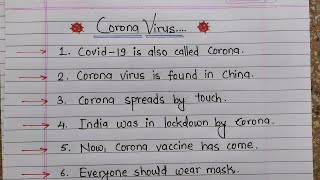 Corona Virus....
1. Covid-19 is also called Corona.
2. Corona virus is found in China.
3. Corona spreads by touch.
4. India was in lockdown by Corona.
5. Now, Corona vaccine has come.
6. Everyone should wear mask.